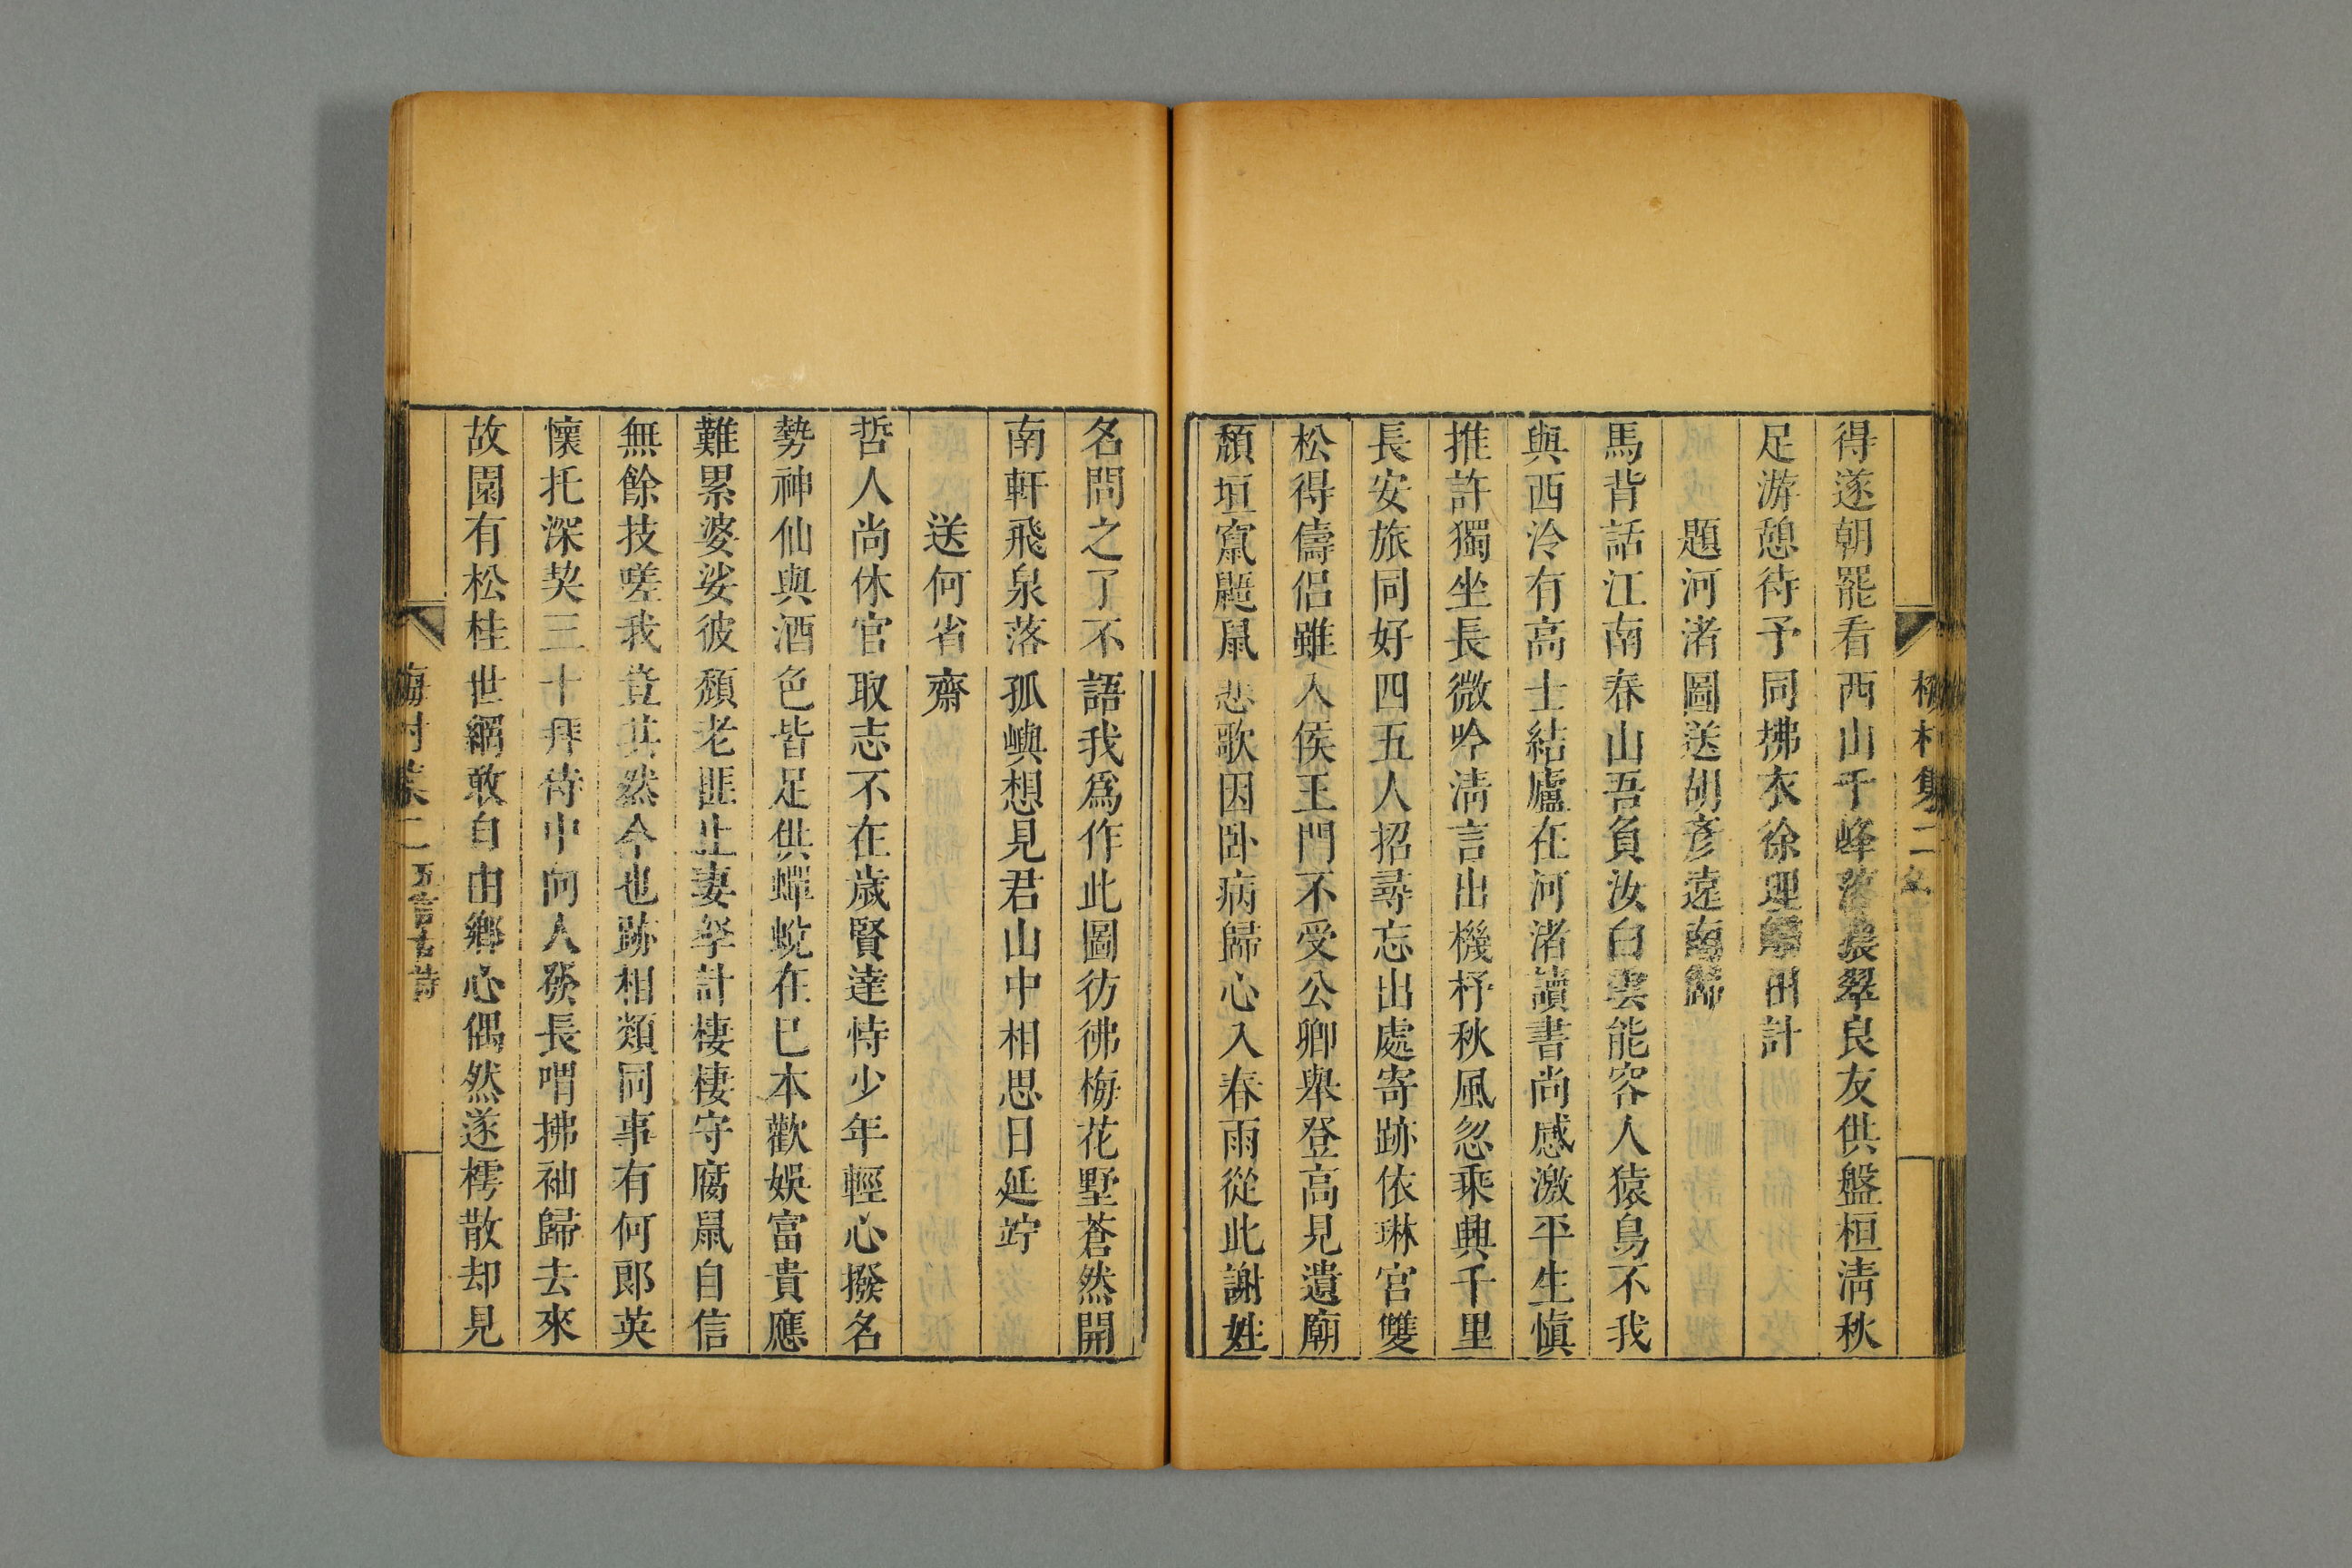 得遂朝罷看西山千峰落濃翠良友供盤桓清秋
足游憩待予同拂衣徐理歸田計
題河渚圖送胡彥遠南歸
馬背話江南春山吾負汝白雲能容人猿鳥不我
與西泠有高士結廬在河渚讀書尚感激平生慎
推許獨坐長微吟清言出機杼秋風忽乘興千里
長安旅同好四五人招尋忘出處寄跡依琳宮雙
松得儔侶雖入侯王門不受公卿舉登高見遺廟
頹垣竄鼯鼠悲歌因臥病歸心入春雨從此謝姓
名問之了不語我為作此圖彷彿梅花墅蒼然開
南軒飛泉落孤嶼想見君山中相思日延竚
送何省齋
哲人尚休官取志不在歲賢達恃少年輕心撥名
勢神仙與酒色皆足供蟬蛻在已本歡娛富貴應
難累婆娑彼頹老匪止妻孥計棲棲守腐鼠自信
無餘技嗟我豈其然今也跡相類同事有何郎英
懷托深契三十拜侍中向人發長喟拂袖歸去來
故園有松桂世網敢自由鄉心偶然遂樗散却見
梅村集二五言古詩